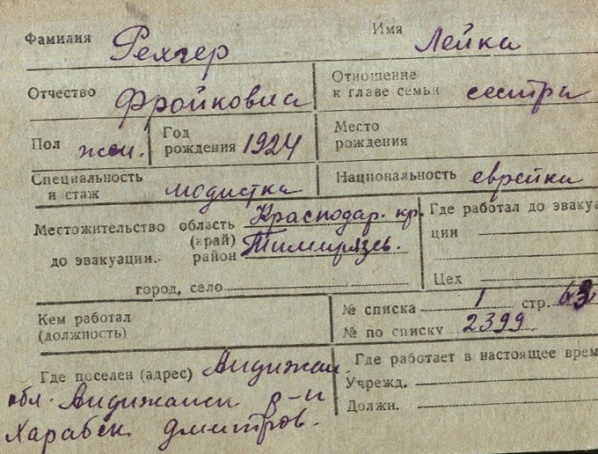 Фамилия Рехчер Имя Лейка
Отчество Фройковна Отношение к главе семьи сестра
Пол жен. Год рождения 1924 Место рождения
Специальность и стаж модистка Национальность еврейка
Местожительство область (край) Краснодар. кр. Где работал до эвакуа
до эвакуации. район Тимирязев. ции
город, село Цех
Кем работал (должность) № списка 1 стр. 63
№ по списку 2399
Где поселен (адрес) Андижан. Где работает в настоящее врем
обл. Андижанск р-н Учрежд.
Харабек Дмитров. Должн.